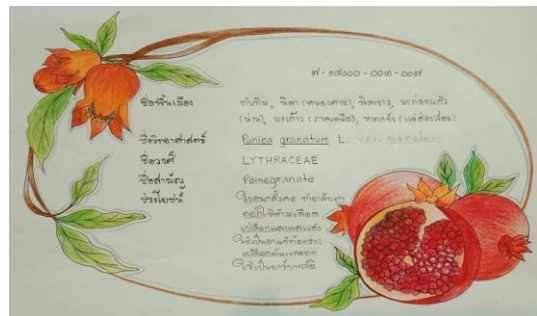 ๗-๑๙๐๐๐-๐๐๓-๐๐๗
ชื่อพื้นเมือง ทับทิม, พิลา (หนองคาย), พิลาขาว, มะก่องแก้ว
(น่าน), มะเก๊าะ (ภาคเหนือ), หมากจัง (แม่ฮ่องสอน)
ชื่อวิทยาศาสตร์ Punica granatum L. var.
ชื่อวงศ์ LYTHRACEAE
ชื่อสามัญ Pomegranate
ประโยชน์ ใบ
ดอกใช้ห้ามเลือด
เปลือกและผลแห้ง
ใช้เป็นยาแก้ท้องร่วง
เปลือกต้นและราก
ใช้เป็นยาขับพยาธิ